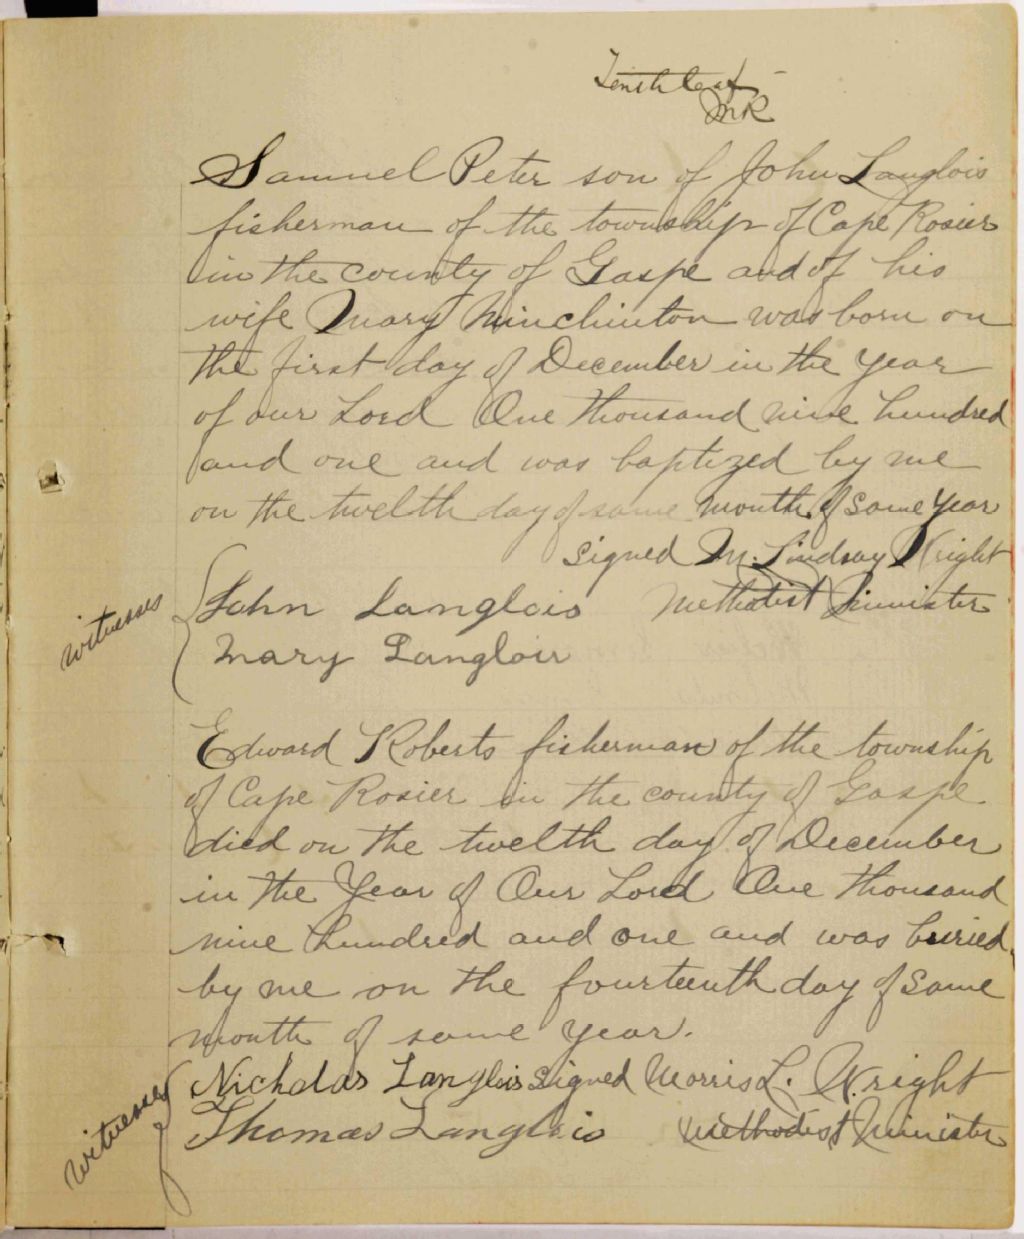 Tenth leaf
MR
Samuel Peter son of John Langlois
fisherman of the township of Cape Rosier
in the county of Gaspe and of his
wife Mary Minchinton was born on
the first day of December in the year
of our Lord One thousand nine hundred
and one and was baptized by me
on the twelth day of same month of same year
signed M. Lindsay Wright
witnesses John Langlois Methodist Minister
Mary Langlois
Edward Roberts fisherman of the township
of Cape Rosier in the county of Gaspe
died on the twelth day of December
in the Year of Our Lord One thousand
nine hundred and one and was buried
by me on the fourteenth day of same
month of same year.
witnesses Nicholas Langlois signed Morris L. Wright
Thomas Langlois Methodist Minister